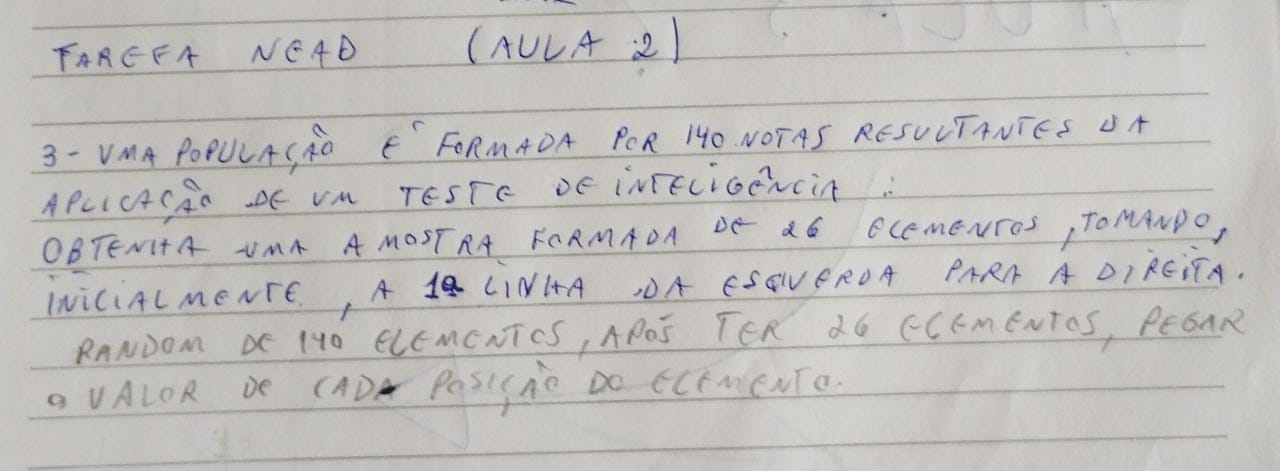 TAREFA NEAD (AULA 2)
3 - UMA POPULAÇÃO É FORMADA POR 140 NOTAS RESULTANTES DA
APLICAÇÃO DE UM TESTE DE INTELIGÊNCIA :
OBTENHA UMA AMOSTRA FORMADA DE 26 ELEMENTOS, TOMANDO,
INICIALMENTE, A 1ª LINHA DA ESQUERDA PARA A DIREITA.
RANDOM DE 140 ELEMENTOS, APÓS TER 26 ELEMENTOS, PEGAR
O VALOR DE CADA POSIÇÃO DO ELEMENTO.